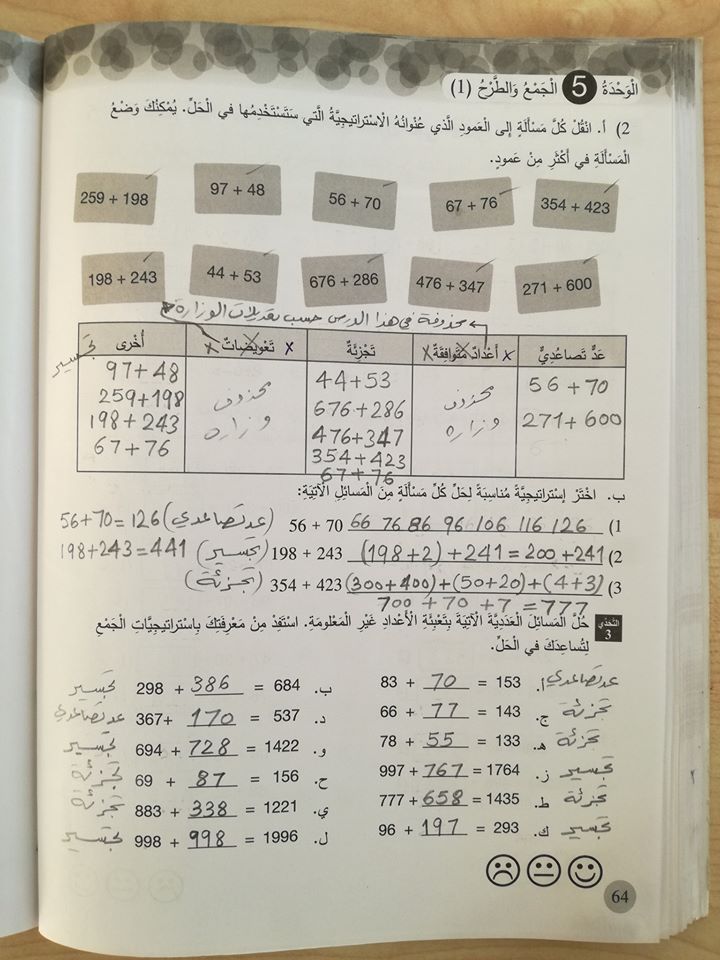 الْوَحْدَةُ 5 الْجَمْعُ وَالطَّرْحُ (1)
2) أ. انْقُلْ كُلَّ مَسْأَلَةٍ إلى الْعَمودِ الَّذي عُنْوانُهُ الْاسْتراتيجِيَّةُ الَّتي سَتَسْتَخْدِمُها في الْحَلِّ. يُمْكِنُكَ وَضْعُ
الْمَسْأَلَةِ في أَكْثَرِ مِنْ عَمودٍ.
354 + 423 67 + 76 56 + 70 97 + 48 259 + 198
271 + 600 476 + 347 676 + 286 44 + 53 198 + 243
محذوفة في هذا الدرس حسب تعديلات الوزارة
عَدٌّ تَصاعُدِيٌّ x أَعْدادٌ مُتَوافِقَةٌ x تَجْزِئَةٌ x تَعْويضاتٌ x أُخْرى تجسير
56 + 70 محذوف وزاره 44 + 53 محذوف وزاره 97 + 48
271 + 600 676 + 286 259 + 198
476 + 347 198 + 243
354 + 423 67 + 76
67 + 76
ب. اخْتَرْ إسْتراتيجِيَّةً مُناسِبَةً لِحَلِّ كُلِّ مَسْأَلَةٍ مِنَ الْمَسائِلِ الْآتِيَةِ:
1) 56 + 70 66 76 86 96 106 116 126 (عد تصاعدي) 56 + 70 = 126
2) 198 + 243 (198 + 2) + 241 = 200 + 241 (تجسير) 198 + 243 = 441
3) 354 + 423 (300 + 400) + (50 + 20) + (4 + 3) (تجزئة)
700 + 70 + 7 = 777
التَّحَدّي 3 حُلَّ الْمَسائِلَ الْعَدَدِيَّةَ الْآتِيَةَ بِتَعْبِئَةِ الْأَعْدادِ غَيْرِ الْمَعْلومَةِ. اسْتَفِدْ مِنْ مَعْرِفَتِكَ بِاسْتراتيجِيّاتِ الْجَمْعِ
لِتُساعِدَكَ في الْحَلِّ.
عد تصاعدي أ. 83 + 70 = 153 ب. 298 + 386 = 684 تجسير
تجزئة ج. 66 + 77 = 143 د. 367 + 170 = 537 عد تصاعدي
تجزئة هـ. 78 + 55 = 133 و. 694 + 728 = 1422 تجسير
تجسير ز. 997 + 767 = 1764 ح. 69 + 87 = 156 تجزئة
تجزئة ط. 777 + 658 = 1435 ي. 883 + 338 = 1221 تجزئة
تجسير ك. 96 + 197 = 293 ل. 998 + 998 = 1996 تجسير
64